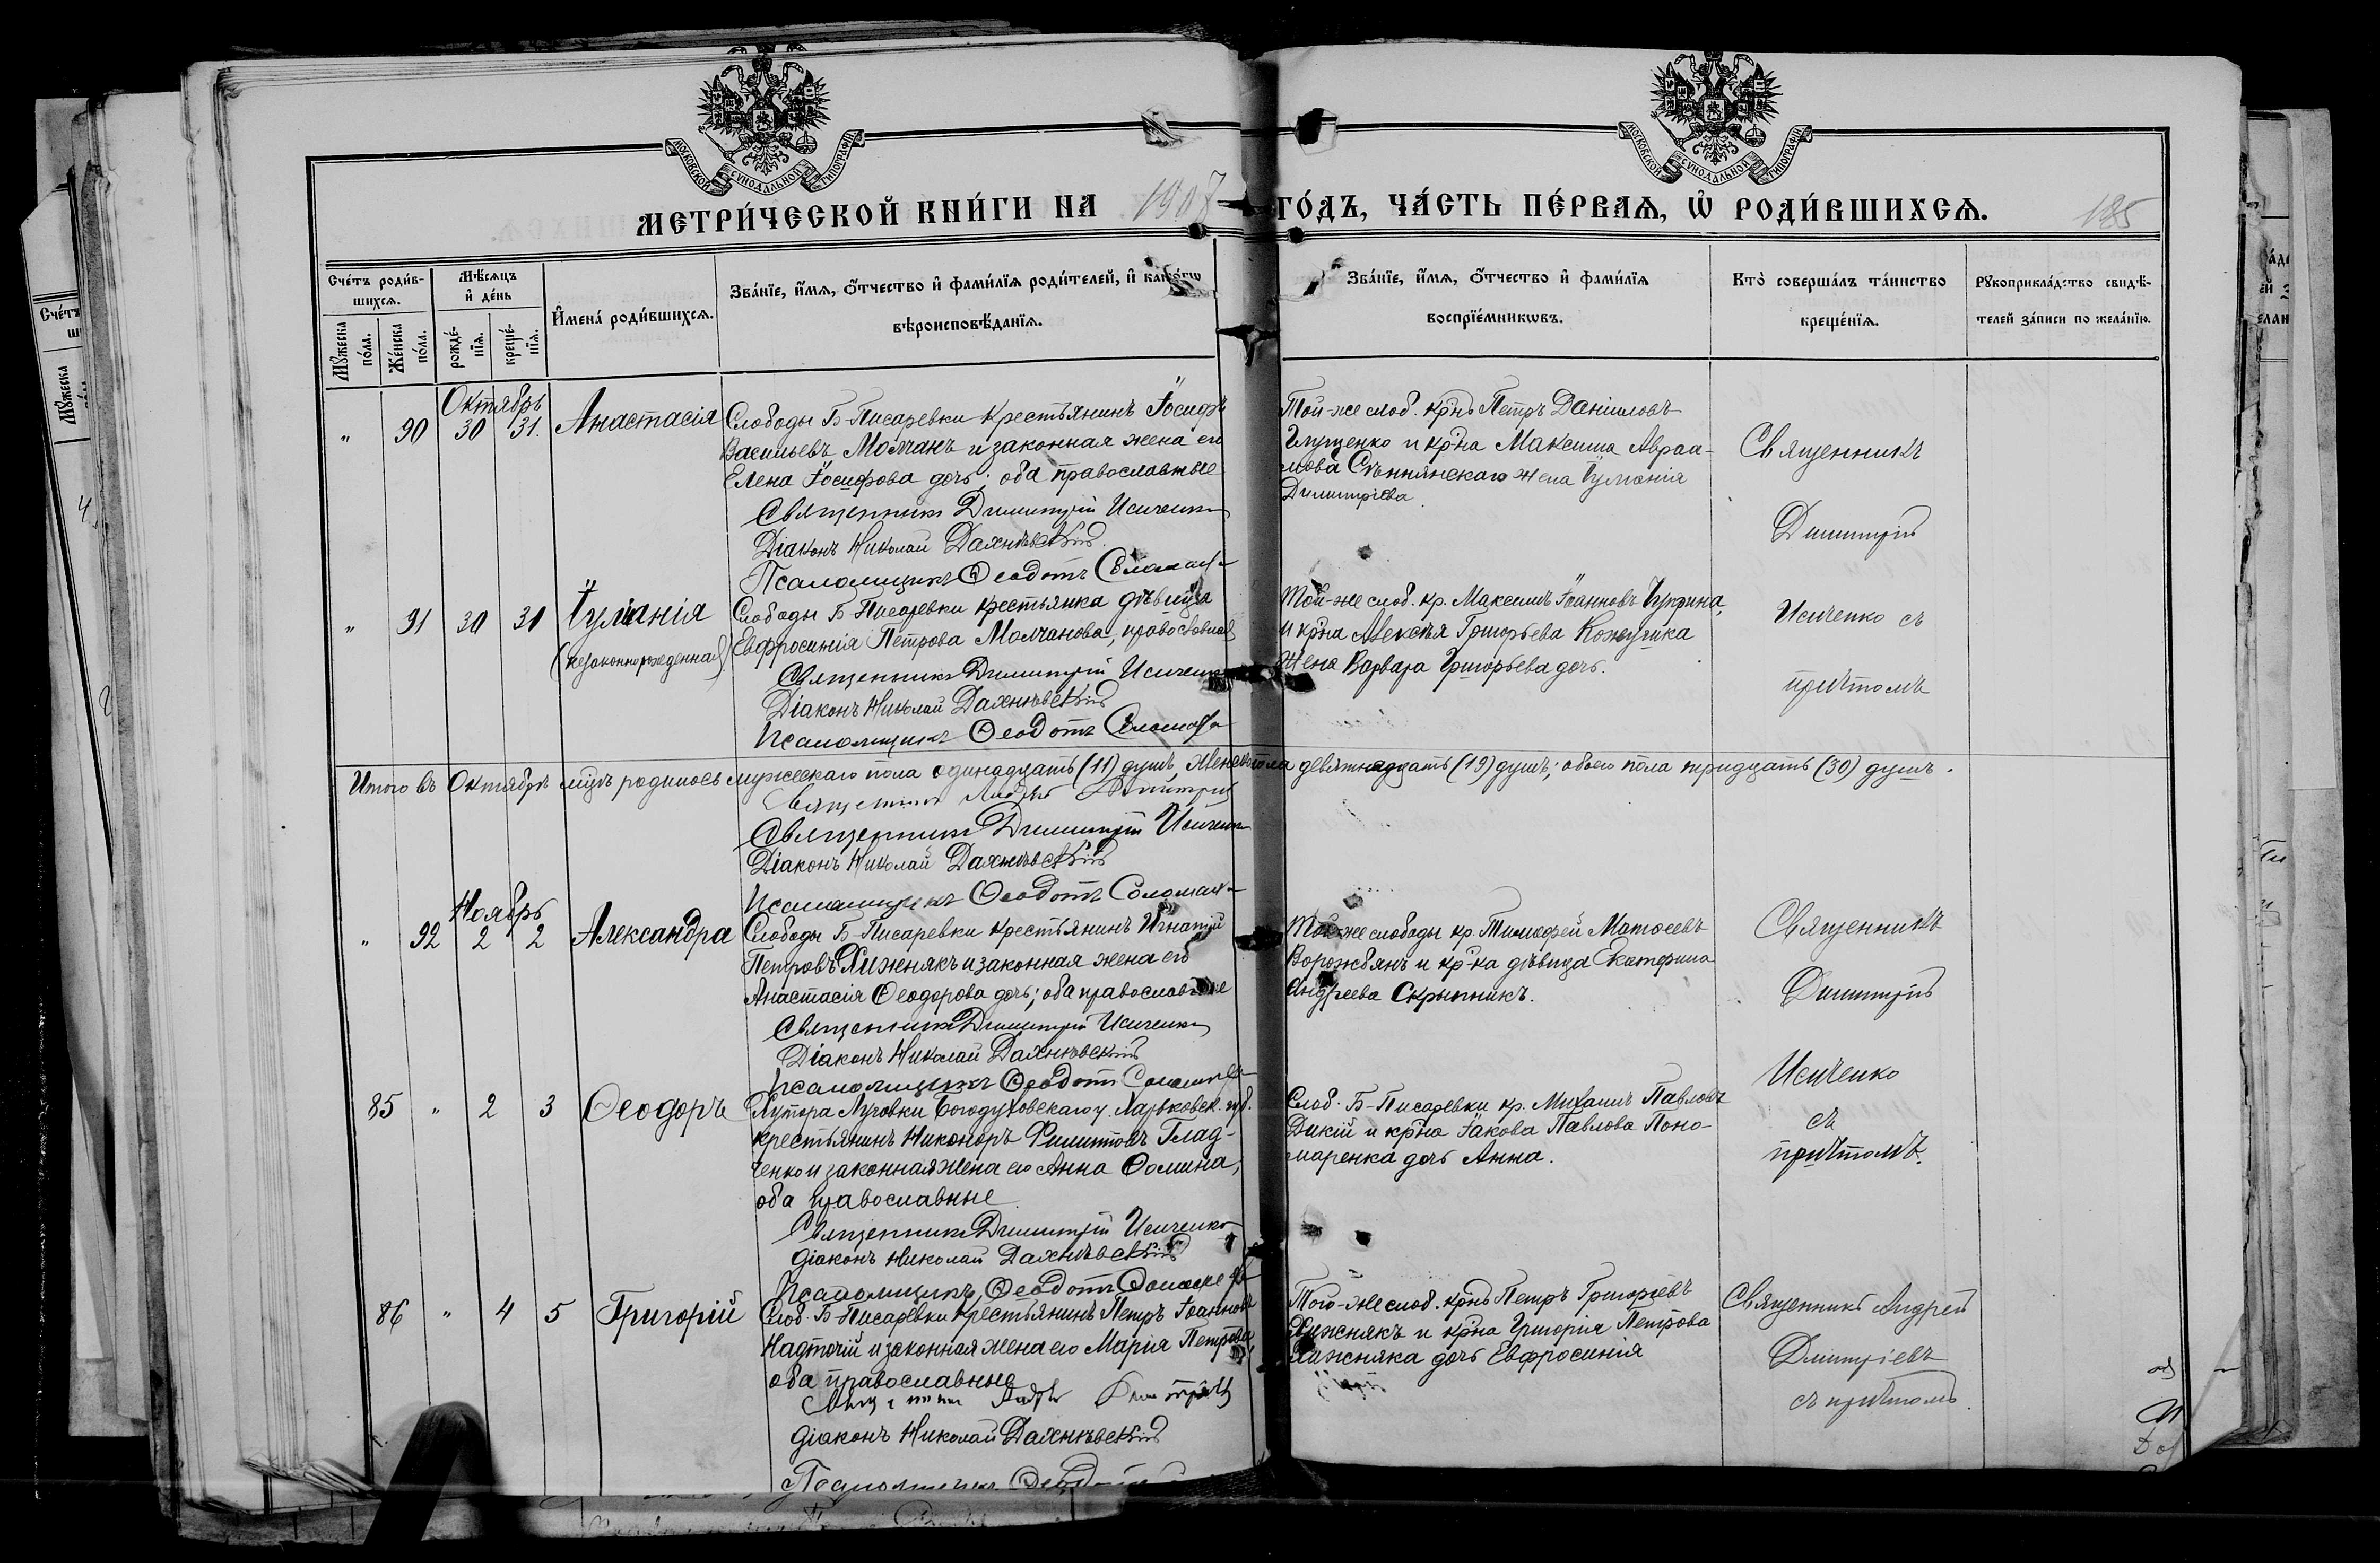 МОСКОВСКОЙ СУНОДАЛЬНОЙ ТИПОГРАФІИ
МОСКОВСКОЙ СУНОДАЛЬНОЙ ТИПОГРАФІИ
МЕТРИ́ЧЕСКОЙ КНИ́ГИ НА 1907 ГО́ДЪ, ЧА́СТЬ ПЕ́РВАЯ, Ѿ РОДИ́ВШИХСѦ.
185
Сче́тъ роди́в-
шихсѧ.
Мꙋ́жеска по́ла.
Же́нска по́ла.
Мѣ́сѧцъ
и҆ де́нь
рожде́-
нїѧ.
креще́-
нїѧ.
И҆мена̀ роди́вшихсѧ.
Зва́нїе, и҆́мѧ, ѻ҆́тчество и҆ фами́лїѧ роди́телей, и҆ како́гѡ
вѣроисповѣ́данїѧ.
Зва́нїе, и҆́мѧ, ѻ҆́тчество и҆ фами́лїѧ
воспрїе́мникѡвъ.
Кто̀ соверша́лъ та́инство
креще́нїѧ.
Рꙋкоприкла́дство свидѣ́-
телей за́писи по жела́нїю.
Октябрь
" 90 30 31. Анастасія
Слободы Б-Писаревки крестьянинъ Іосифъ
Васильевъ Молчанъ и законная жена его
Елена Іосифова дочь; оба православные
Священникъ Димитрій Исиченко
Діаконъ Николай Дахнѣвскій
Псаломщикъ Ѳеодотъ
Той-же слоб. кр-нъ Петръ Даніиловъ
Глущенко и кр-на Максима Авраа-
мова жена Іуліанія
Димитріева
Священникъ
Димитрій
Исиченко съ
причтомъ
" 91 30 31 Іуліанія
(незаконнорожденная)
Слободы Б-Писаревки крестьянка дѣвица
Евфросинія Петрова Молчанова, православная
Священникъ Димитрій Исиченко
Діаконъ Николай Дахнѣвскій
Псаломщикъ Ѳеодотъ
Той-же слоб. кр. Максимъ Іоанновъ
и кр-на Алексѣя Григорьева Кожушка
жена Варвара Григорьева дочь.
Итого въ Октябрѣ мцѣ родилось мужескаго пола одинадцать (11) душъ, женск пола девятнадцать (19) душъ; обоего пола тридцать (30) душъ.
Священникъ Андрей Димитріевъ
Священникъ Димитрій Исиченко
Діаконъ Николай Дахнѣвскій
Псаломщикъ Ѳеодотъ
Ноябрь
" 92 2 2 Александра
Слободы Б-Писаревки крестьянинъ Игнатій
Петровъ Хижнякъ и законная жена его
Анастасія Ѳеодорова дочь; оба православные
Священникъ Димитрій Исиченко
Діаконъ Николай Дахнѣвскій
Псаломщикъ Ѳеодотъ
Той-же слободы кр. Тимофей Матѳеевъ
Ворожбянъ и кр-ка дѣвица Екатерина
Андреева Скрыпникъ.
Священникъ
Димитрій
Исиченко
съ
причтомъ.
85 " 2 3 Ѳеодоръ
Хутора Луговки Богодуховскаго у. Харьковск. губ.
крестьянинъ Никоноръ Филипповъ Глад-
ченко и законная жена его Анна Ѳомина,
оба православные
Священникъ Димитрій Исиченко
діаконъ Николай Дахнѣвскій
Псаломщикъ Ѳеодотъ
Слоб. Б-Писаревки кр. Михаилъ Павловъ
Дикій и кр-на Іакова Павлова Поно-
маренка дочь Анна.
86 " 4 5 Григорій
Слоб. Б-Писаревки крестьянинъ Петръ Іоанновъ
Надточій и законная жена его Марія Петрова,
оба православные
Священникъ Андрей Димитріевъ
діаконъ Николай Дахнѣвскій
Псаломщикъ Ѳеодотъ
Того-же слоб. кр-нъ Петръ Григорьевъ
Хижнякъ и кр-на Григорія Петрова
Хижняка дочь Евфросинія
Священникъ Андрей
Димитріевъ
съ причтомъ.